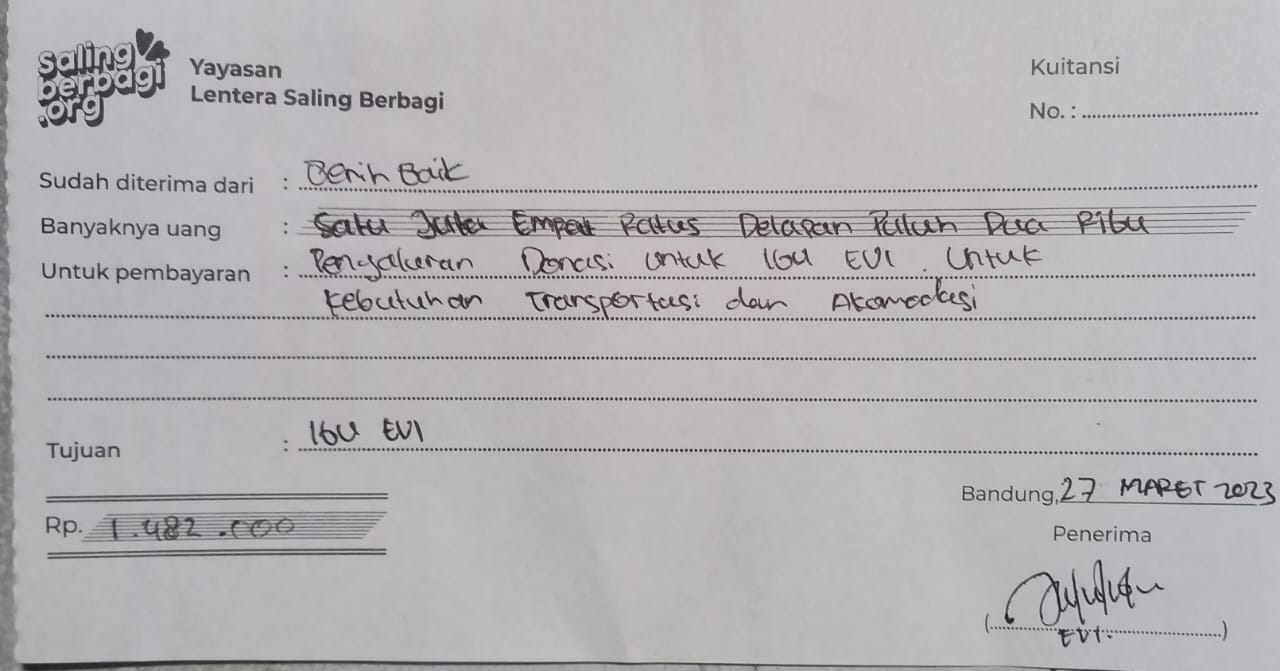 saling
berbagi
.org
Yayasan
Lentera Saling Berbagi
Kuitansi
No. :
Sudah diterima dari : Benih Baik
Banyaknya uang : Satu Juta Empat Ratus Delapan Puluh Dua Ribu
Untuk pembayaran : Penyaluran Donasi Untuk IBU EVI. Untuk
Kebutuhan Transportasi dan Akomodasi
Tujuan : IBU EVI
Rp. 1.482.000
Bandung, 27 MARET 2023
Penerima
( EVI. )